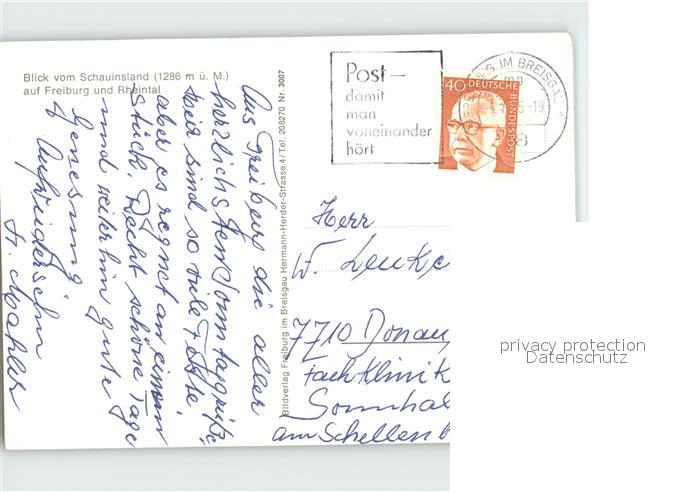 Blick vom Schauinsland (1286 m ü. M.)
auf Freiburg und Rheintal
Aus Freiburg die aller
herzlichsten Sonntaggrüße
wir sind so viele Feste
aber es regnet an einem
Stück. Recht schöne Tage
und weiterhin gute
Genesung
Aufwiedersehn
H. Mahler
Bildverlag Freiburg im Breisgau Hermann-Herder-Strasse 4 / Tel. 208270 Nr. 3007
Post –
damit
man
voneinander
hört
40 DEUTSCHE
BUNDESPOST
IM BREISGAU
Herr
W.
7710 Donau
Fachklinik
Sonnhal
am Schellen
privacy protection
Datenschutz